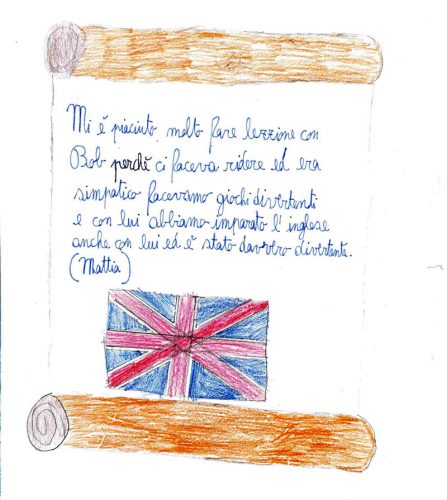 Mi è piaciuto molto fare lezzione con
Bob perchè ci faceva ridere ed era
simpatico facevamo giochi divertenti
e con lui abbiamo imparato l'inglese
anche con lui ed è stato davvero divertente.
(Mattia)